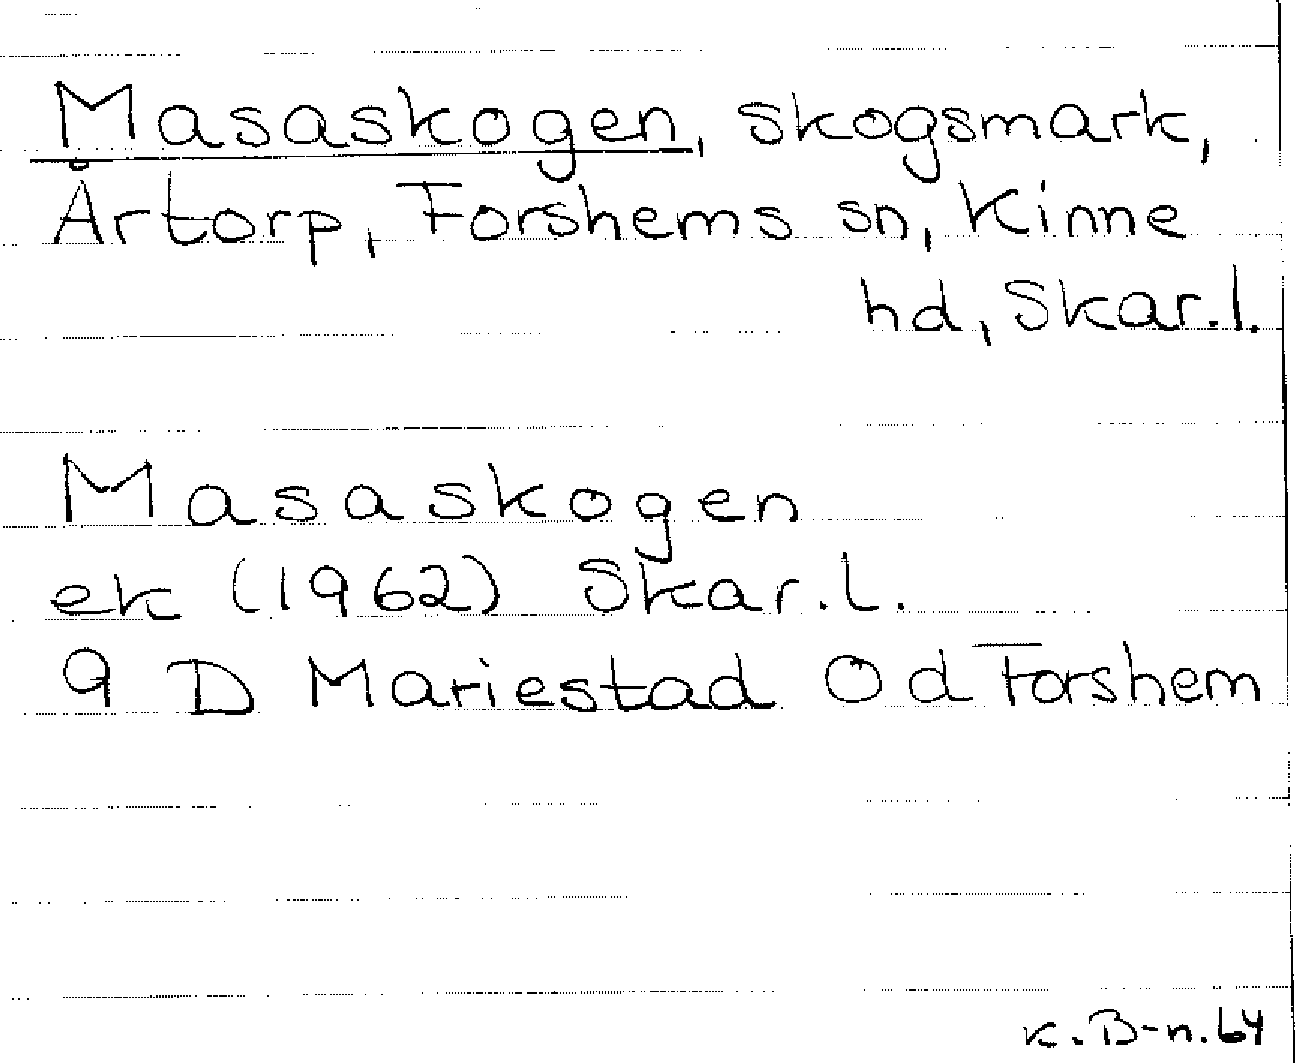 Masaskogen, skogsmark,
Årtorp, Forshems sn, Kinne
hd, Skar.l.
Masaskogen
ek (1962) Skar.l.
9 D Mariestad Od Forshem
K.B-n.64